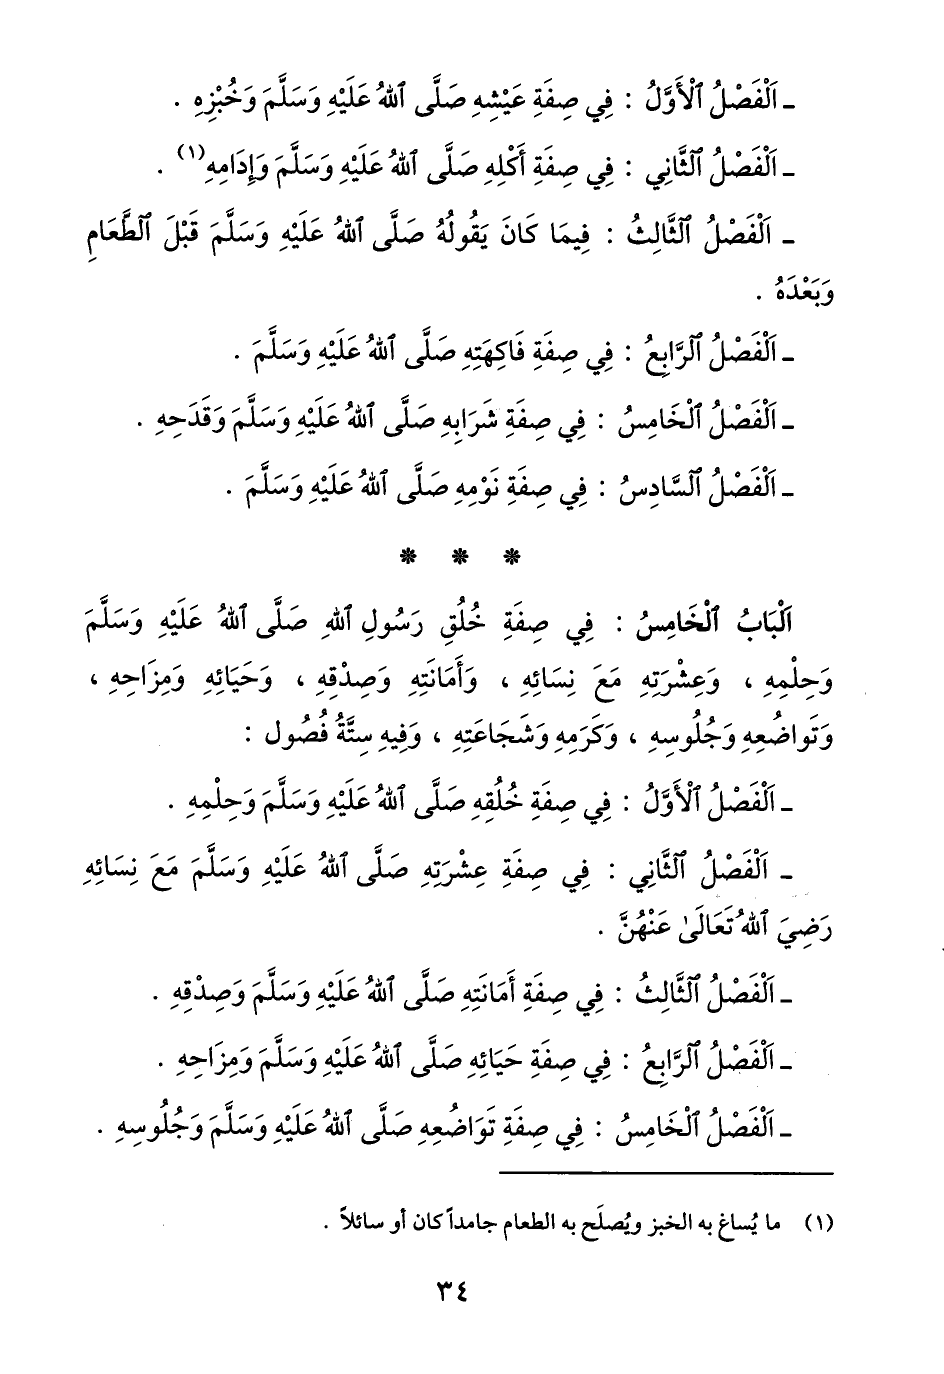 ـ اَلْفَصْلُ ٱلْأَوَّلُ : فِي صِفَةِ عَيْشِهِ صَلَّى ٱللهُ عَلَيْهِ وَسَلَّمَ وَخُبْزِهِ .
ـ اَلْفَصْلُ ٱلثَّانِي : فِي صِفَةِ أَكْلِهِ صَلَّى ٱللهُ عَلَيْهِ وَسَلَّمَ وَإِدَامِهِ(١) .
ـ اَلْفَصْلُ ٱلثَّالِثُ : فِيمَا كَانَ يَقُولُهُ صَلَّى ٱللهُ عَلَيْهِ وَسَلَّمَ قَبْلَ ٱلطَّعَامِ
وَبَعْدَهُ .
ـ اَلْفَصْلُ ٱلرَّابِعُ : فِي صِفَةِ فَاكِهَتِهِ صَلَّى ٱللهُ عَلَيْهِ وَسَلَّمَ .
ـ اَلْفَصْلُ ٱلْخَامِسُ : فِي صِفَةِ شَرَابِهِ صَلَّى ٱللهُ عَلَيْهِ وَسَلَّمَ وَقَدَحِهِ .
ـ اَلْفَصْلُ ٱلسَّادِسُ : فِي صِفَةِ نَوْمِهِ صَلَّى ٱللهُ عَلَيْهِ وَسَلَّمَ .
* * *
اَلْبَابُ ٱلْخَامِسُ : فِي صِفَةِ خُلُقِ رَسُولِ ٱللهِ صَلَّى ٱللهُ عَلَيْهِ وَسَلَّمَ
وَحِلْمِهِ ، وَعِشْرَتِهِ مَعَ نِسَائِهِ ، وَأَمَانَتِهِ وَصِدْقِهِ ، وَحَيَائِهِ وَمِزَاحِهِ ،
وَتَوَاضُعِهِ وَجُلُوسِهِ ، وَكَرَمِهِ وَشَجَاعَتِهِ ، وَفِيهِ سِتَّةُ فُصُول :
ـ اَلْفَصْلُ ٱلْأَوَّلُ : فِي صِفَةِ خُلُقِهِ صَلَّى ٱللهُ عَلَيْهِ وَسَلَّمَ وَحِلْمِهِ .
ـ اَلْفَصْلُ ٱلثَّانِي : فِي صِفَةِ عِشْرَتِهِ صَلَّى ٱللهُ عَلَيْهِ وَسَلَّمَ مَعَ نِسَائِهِ
رَضِيَ ٱللهُ تَعَالَىٰ عَنْهُنَّ .
ـ اَلْفَصْلُ ٱلثَّالِثُ : فِي صِفَةِ أَمَانَتِهِ صَلَّى ٱللهُ عَلَيْهِ وَسَلَّمَ وَصِدْقِهِ .
ـ اَلْفَصْلُ ٱلرَّابِعُ : فِي صِفَةِ حَيَائِهِ صَلَّى ٱللهُ عَلَيْهِ وَسَلَّمَ وَمِزَاحِهِ .
ـ اَلْفَصْلُ ٱلْخَامِسُ : فِي صِفَةِ تَوَاضُعِهِ صَلَّى ٱللهُ عَلَيْهِ وَسَلَّمَ وَجُلُوسِهِ .
(١) ما يُساغ به الخبز ويُصلَح به الطعام جامداً كان أو سائلاً .
٣٤